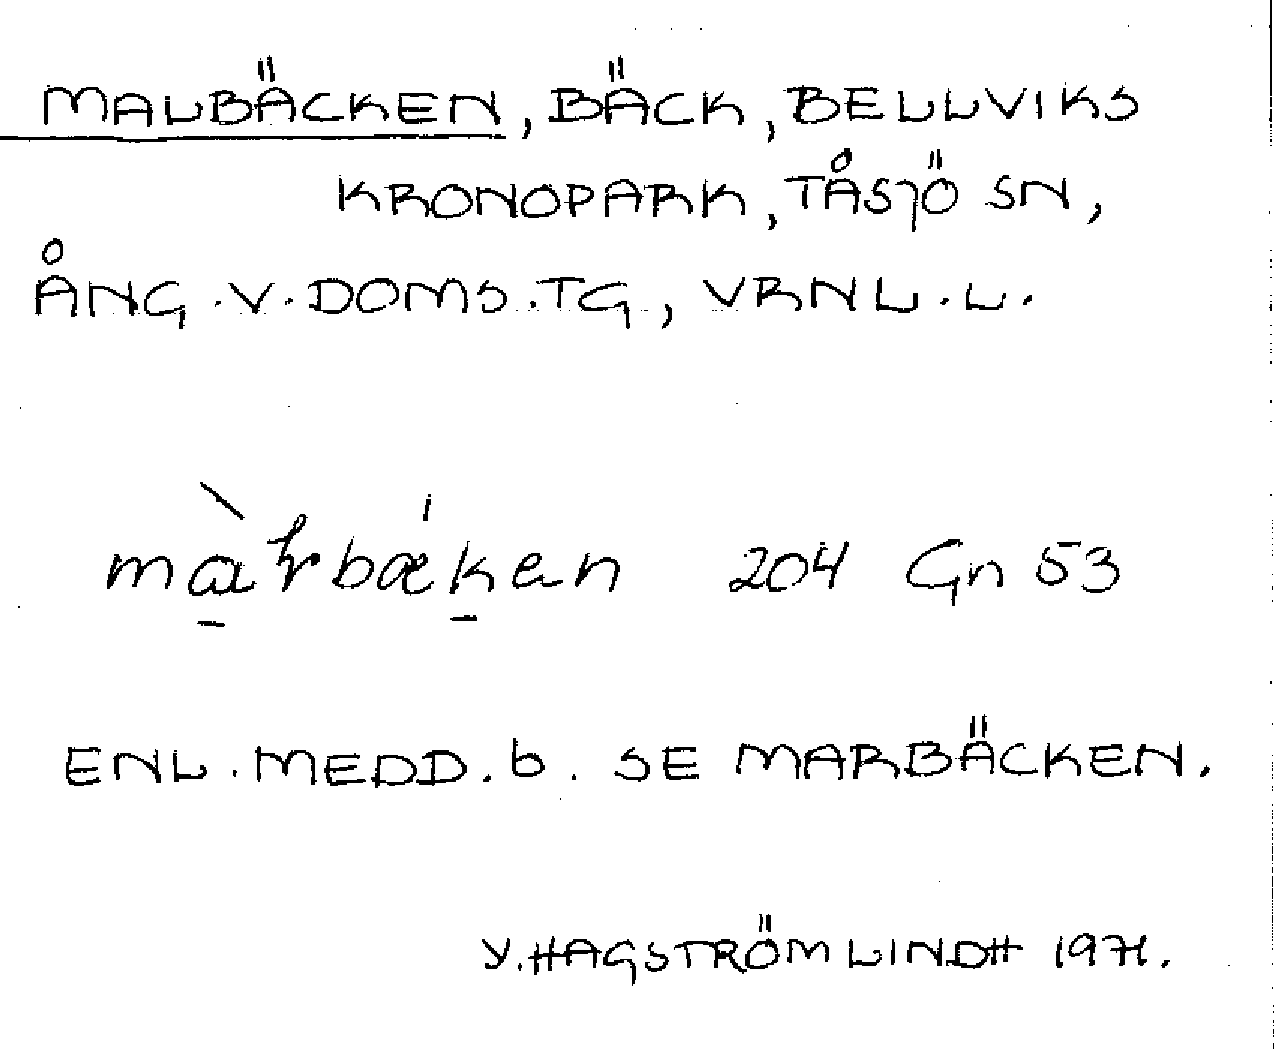 MALBÄCKEN, BÄCK, BELLVIKS
KRONOPARK, TÅSJÖ SN,
ÅNG. V. DOMS. TG, VRNL. L.
204 Gn 53
ENL. MEDD. b. SE MARBÄCKEN.
Y. HAGSTRÖM LINDH 1971.